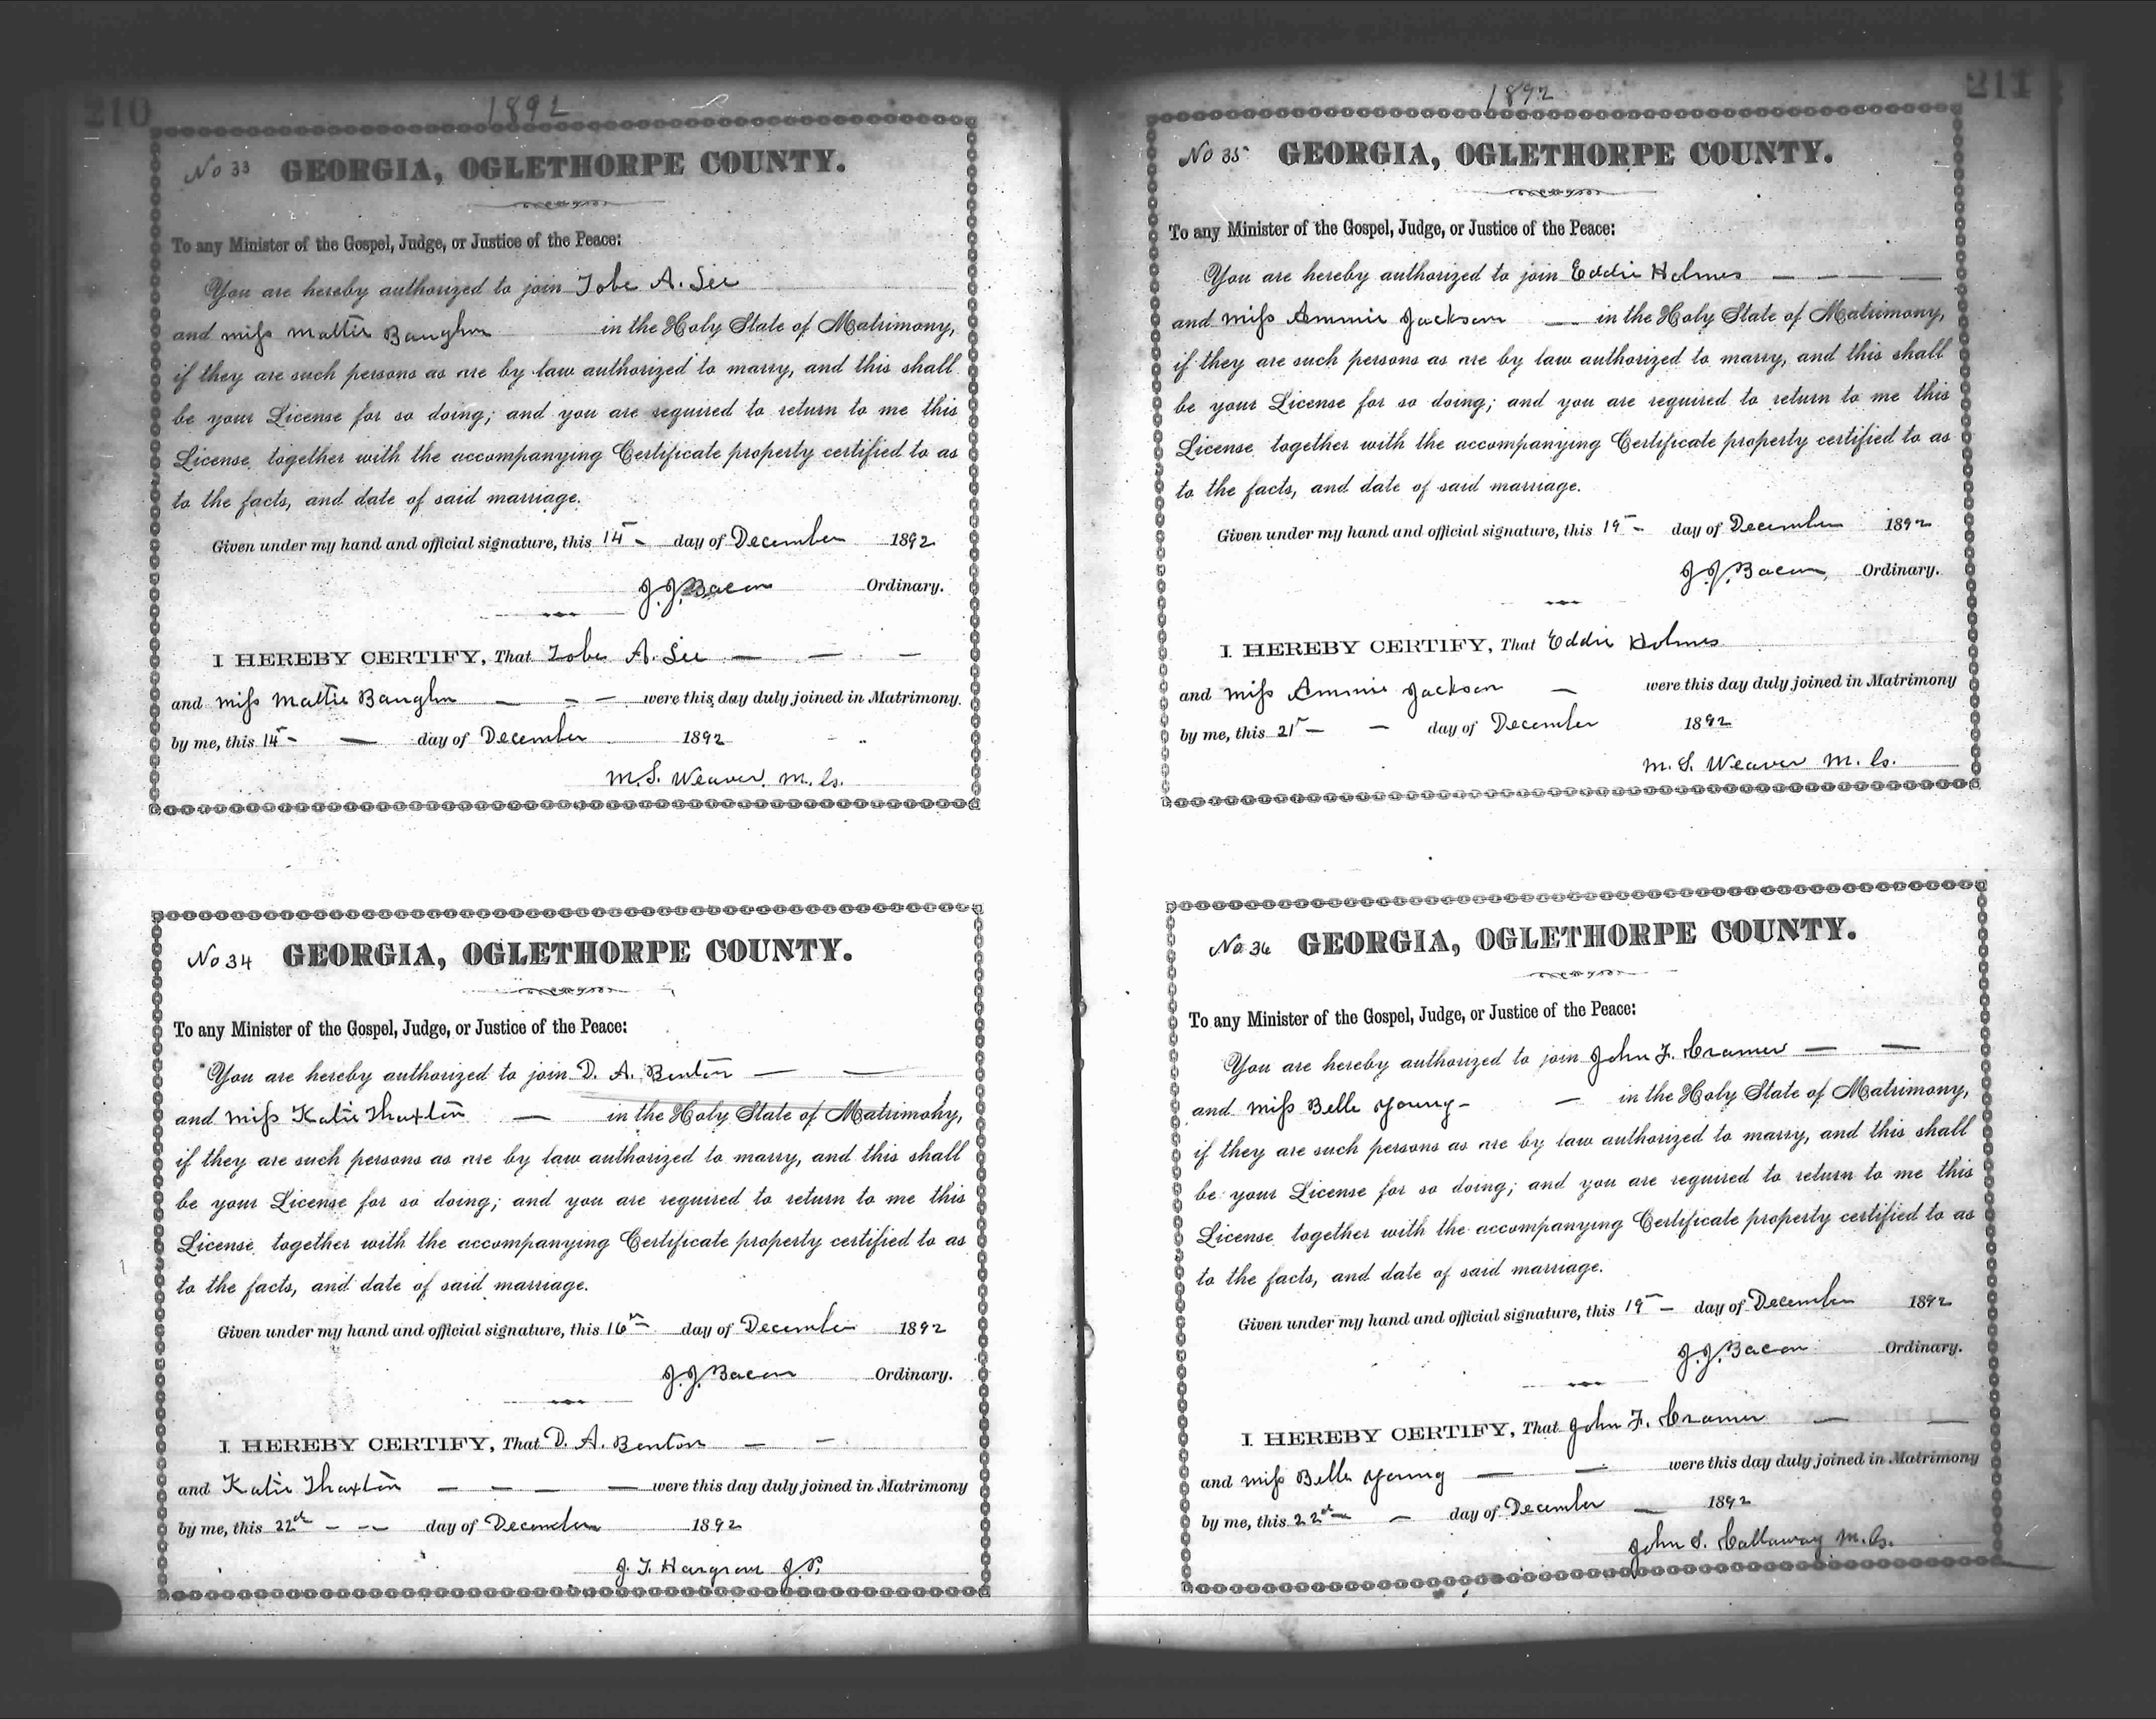 210
1892
No 33 GEORGIA, OGLETHORPE COUNTY.
To any Minister of the Gospel, Judge, or Justice of the Peace:
You are hereby authorized to join Tobe A. Lee
and miss Mattie Baughn in the Holy State of Matrimony,
if they are such persons as are by law authorized to marry, and this shall
be your License for so doing; and you are required to return to me this
License, together with the accompanying Certificate property certified to as
to the facts, and date of said marriage.
Given under my hand and official signature, this 14 - day of December 1892
J. J. Bacon Ordinary.
I HEREBY CERTIFY, That Tobe A. Lee — — —
and miss Mattie Baughn — - — were this day duly joined in Matrimony.
by me, this 14 - — day of December 1892
M. S. Weaver. M. G.
No 34 GEORGIA, OGLETHORPE COUNTY.
To any Minister of the Gospel, Judge, or Justice of the Peace:
You are hereby authorized to join D. A. Benton — —
and miss Katie Thaxton — in the Holy State of Matrimony,
if they are such persons as are by law authorized to marry, and this shall
be your License for so doing; and you are required to return to me this
License, together with the accompanying Certificate property certified to as
to the facts, and date of said marriage.
Given under my hand and official signature, this 16th day of December 1892
J. J. Bacon Ordinary.
I HEREBY CERTIFY, That D. A. Benton — —
and Katie Thaxton — — — — were this day duly joined in Matrimony
by me, this 22d - -- day of December 1892
J. T. Hargrove J. P.
211
1892
No 35 GEORGIA, OGLETHORPE COUNTY.
To any Minister of the Gospel, Judge, or Justice of the Peace:
You are hereby authorized to join Eddie Holmes — — — —
and miss Ammie Jackson — in the Holy State of Matrimony,
if they are such persons as are by law authorized to marry, and this shall
be your License for so doing; and you are required to return to me this
License, together with the accompanying Certificate property certified to as
to the facts, and date of said marriage.
Given under my hand and official signature, this 19 - day of December 1892
J. J. Bacon, Ordinary.
I HEREBY CERTIFY, That Eddie Holmes
and miss Ammie Jackson — were this day duly joined in Matrimony
by me, this 21 — - day of December 1892
M. S. Weaver M. G.
No. 36 GEORGIA, OGLETHORPE COUNTY.
To any Minister of the Gospel, Judge, or Justice of the Peace:
You are hereby authorized to join John F. Cramer — —
and miss Belle Young - — in the Holy State of Matrimony,
if they are such persons as are by law authorized to marry, and this shall
be your License for so doing; and you are required to return to me this
License, together with the accompanying Certificate property certified to as
to the facts, and date of said marriage.
Given under my hand and official signature, this 19 - day of December 1892
J. J. Bacon Ordinary.
I HEREBY CERTIFY, That John F. Cramer — —
and miss Belle Young — — were this day duly joined in Matrimony
by me, this 22d — - day of December — 1892
John S. Callaway M. G.